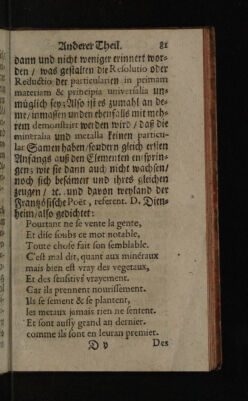 Anderer Theil. 81
dann und nicht weniger erinnert wor-
den / was gestalten die Resolutio oder
Reductio der particularien in primam
materiam & principia universalia un-
müglich sey: Also ist es zumahl an de-
me / inmassen unden ebenfalls mit meh-
rem demonstrirt werden wird / daß die
mineralia und metalla keinen particu-
lar Samen haben / sondern gleich ersten
Anfangs auß den Elementen entsprin-
gen; wie sie dann auch nicht wachsen /
noch sich besämen und ihres gleichen
zeugen / ꝛc. und davon weyland der
Frantzösische Poët, referent. D. Dien-
heim / also gedichtet:
Pourtant ne se vente la gente,
Et dise soubs ce mot notable,
Toute chose fait son semblable.
C'est mal dit, quant aux minéraux
mais bien est vray des vegetaux,
Et des sensitivs vrayement.
Car ils prennent nourissement.
Ils se sement & se plantent,
les metaux jamais rien ne sentent.
Et sont aussy grand an dernier.
comme ils sont en leur an premier.
D v Des